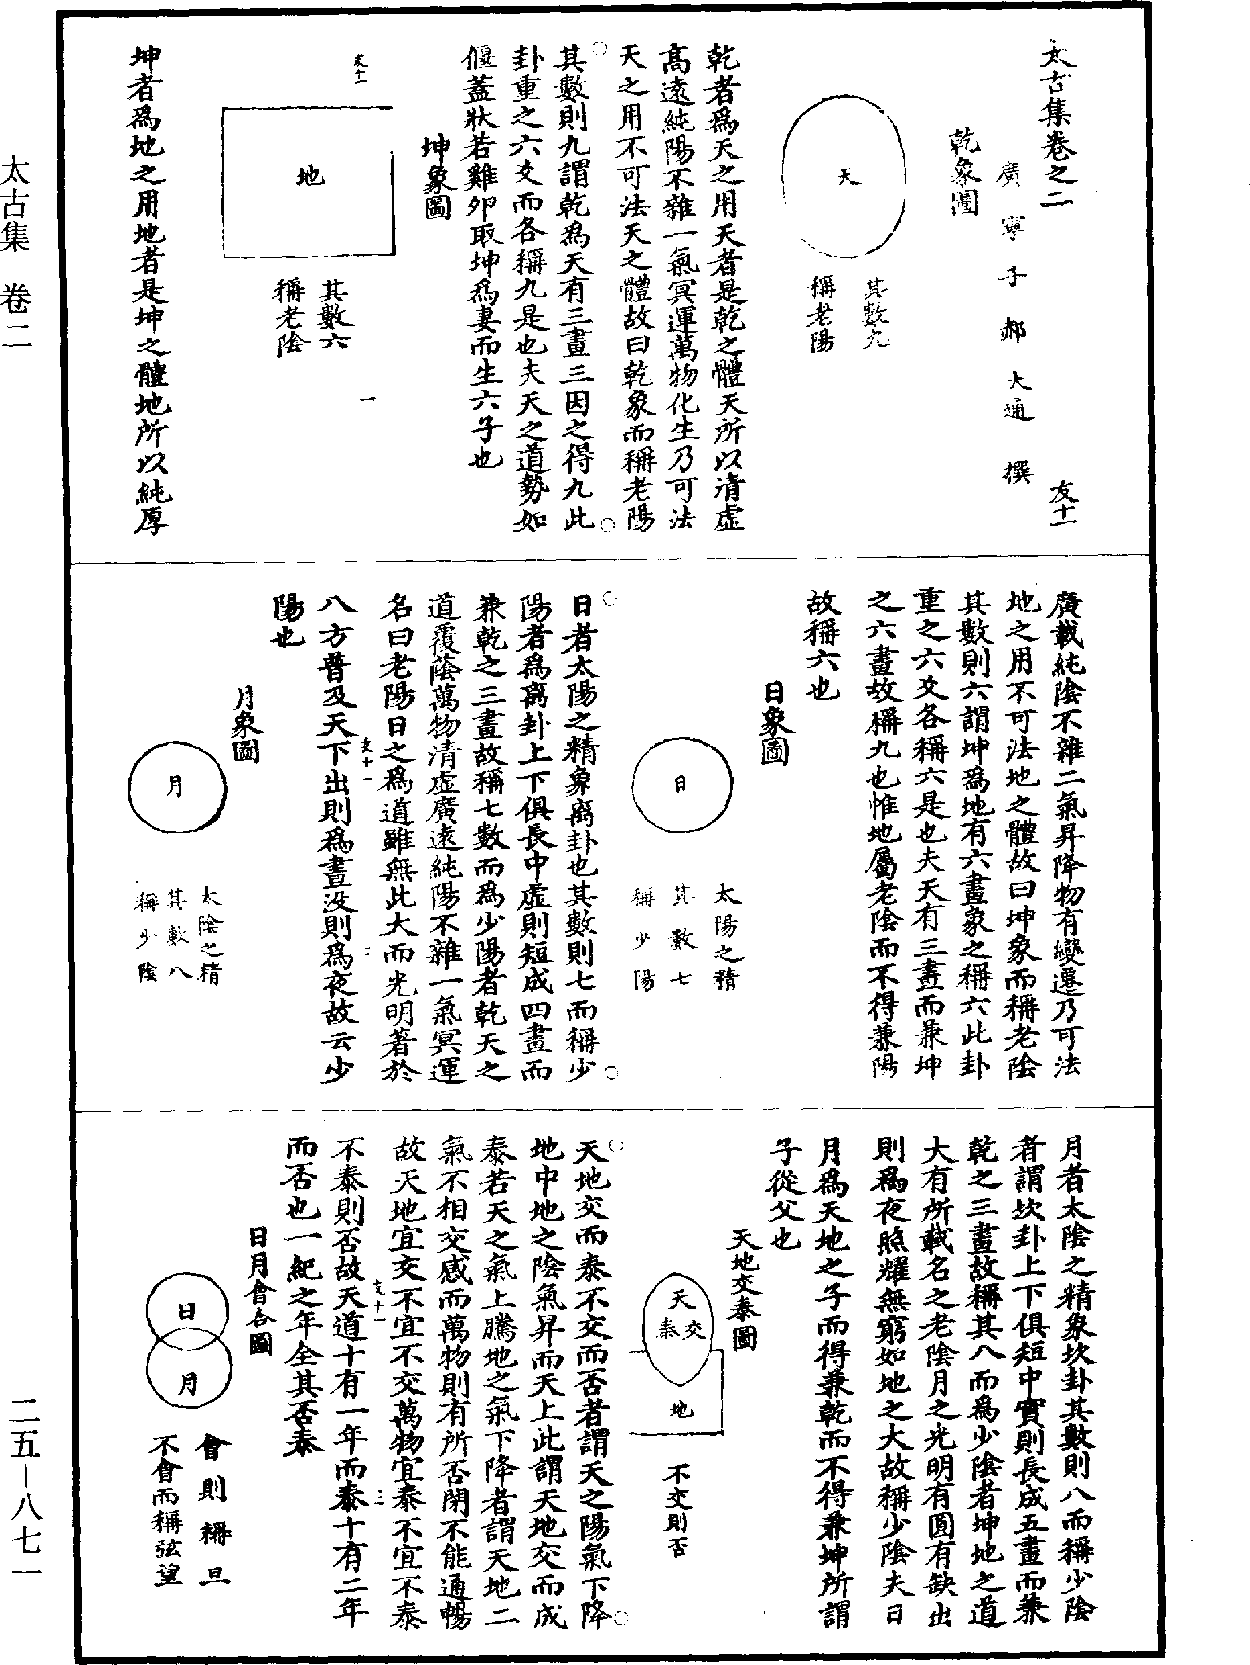 太古集卷之二
友十一
廣寧子郝大通撰
乾象圖
天
其數九
稱老陽
乾者為天之用天者是乾之體天所以清虛
高遠純陽不雜一氣冥運萬物化生乃可法
天之用不可法天之體故曰乾象而稱老陽
其數則九謂乾為天有三畫三因之得九此
卦重之六爻而各稱九是也夫天之道勢如
偃蓋狀若雞卵取坤為妻而生六子也
坤象圖
地
其數六
稱老陰
一
坤者為地之用地者是坤之體地所以純厚
廣載純陰不雜二氣昇降物有變遷乃可法
地之用不可法地之體故曰坤象而稱老陰
其數則六謂坤為地有六畫象之稱六此卦
重之六爻各稱六是也夫天有三畫而兼坤
之六畫故稱九也惟地屬老陰而不得兼陽
故稱六也
日象圖
日
太陽之精
其數七
稱少陽
日者太陽之精象离卦也其數則七而稱少
陽者為离卦上下俱長中虛則短成四畫而
兼乾之三畫故稱七數而為少陽者乾天之
道覆蔭萬物清虛廣遠純陽不雜一氣冥運
名曰老陽日之為道雖無此大而光明著於
友十一
八方普及天下出則為晝没則為夜故云少
陽也
月象圖
月
太陰之精
其數八
稱少陰
月者太陰之精象坎卦其數則八而稱少陰
者謂坎卦上下俱短中實則長成五畫而兼
乾之三畫故稱其八而為少陰者坤地之道
大有所載名之老陰月之光明有圓有缺出
則為夜照耀無窮如地之大故稱少陰夫日
月為天地之子而得兼乾而不得兼坤所謂
子從父也
天地交泰圖
天
交泰
地
不交則否
天地交而泰不交而否者謂天之陽氣下降
地中地之陰氣昇而天上此謂天地交而成
泰若天之氣上騰地之氣下降者謂天地二
氣不相交感而萬物則有所否閉不能通暢
故天地宜交不宜不交萬物宜泰不宜不泰
友十一
二
不泰則否故天道十有一年而泰十有二年
而否也一紀之年全其否泰
日月會合圖
日
月
會則稱旦
不會而稱弦望
太古集 卷二
二五—八七一